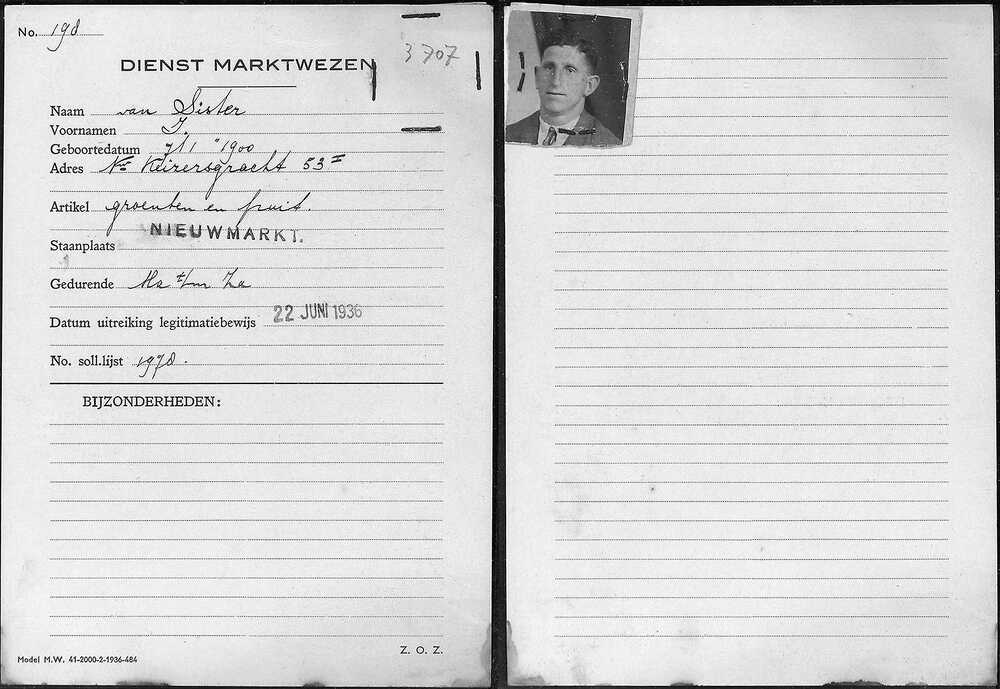 No. 198
3707
DIENST MARKTWEZEN
Naam van Sister
Voornamen I.
Geboortedatum 7/1 1900
Adres Nwe Keizersgracht 53 I
Artikel groenten en fruit.
Staanplaats NIEUWMARKT.
Gedurende Ma t/m Za
Datum uitreiking legitimatiebewijs 22 JUNI 1936
No. soll.lijst 1978.
BIJZONDERHEDEN:
Model M.W. 41-2000-2-1936-484
Z. O. Z.